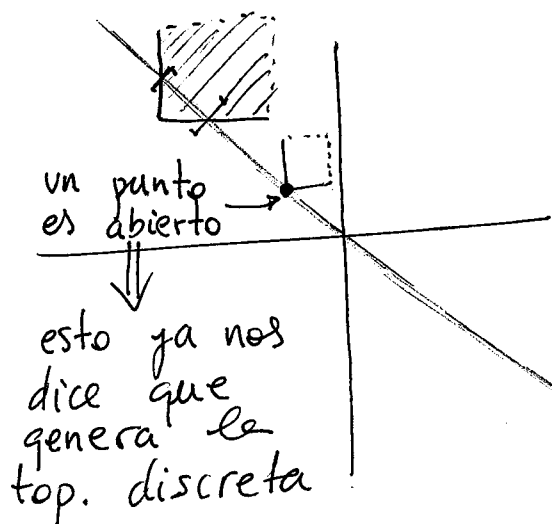 un punto
es abierto
esto ya nos
dice que
genera la
top. discreta